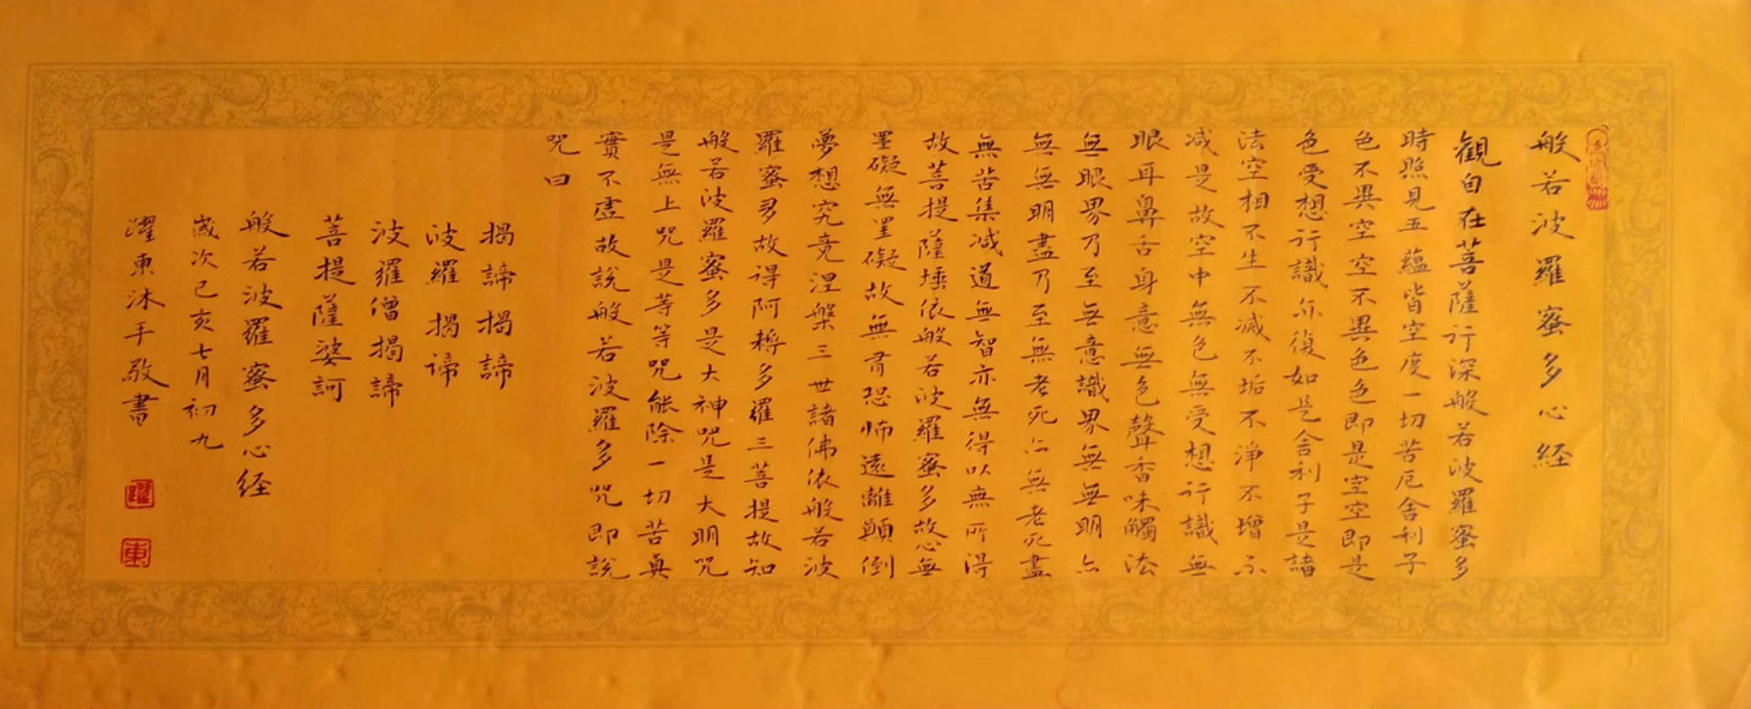 般若波羅蜜多心経
觀自在菩薩行深般若波羅蜜多
時照見五蘊皆空度一切苦厄舍利子
色不異空空不異色色即是空空即是
色受想行識亦復如是舍利子是諸
法空相不生不滅不垢不淨不增不
減是故空中無色無受想行識無
眼耳鼻舌身意無色聲香味觸法
無眼界乃至無意識界無無明亦
無無明盡乃至無老死亦無老死盡
無苦集滅道無智亦無得以無所得
故菩提薩埵依般若波羅蜜多故心無
罣礙無罣礙故無有恐怖遠離顛倒
夢想究竟涅槃三世諸佛依般若波
羅蜜多故得阿耨多羅三菩提故知
般若波羅蜜多是大神咒是大明咒
是無上咒是等等咒能除一切苦真
實不虛故說般若波羅多咒即說
咒曰
揭諦揭諦
波羅揭諦
波羅僧揭諦
菩提薩婆訶
般若波羅蜜多心経
歲次己亥七月初九
躍東沐手敬書
躍
東